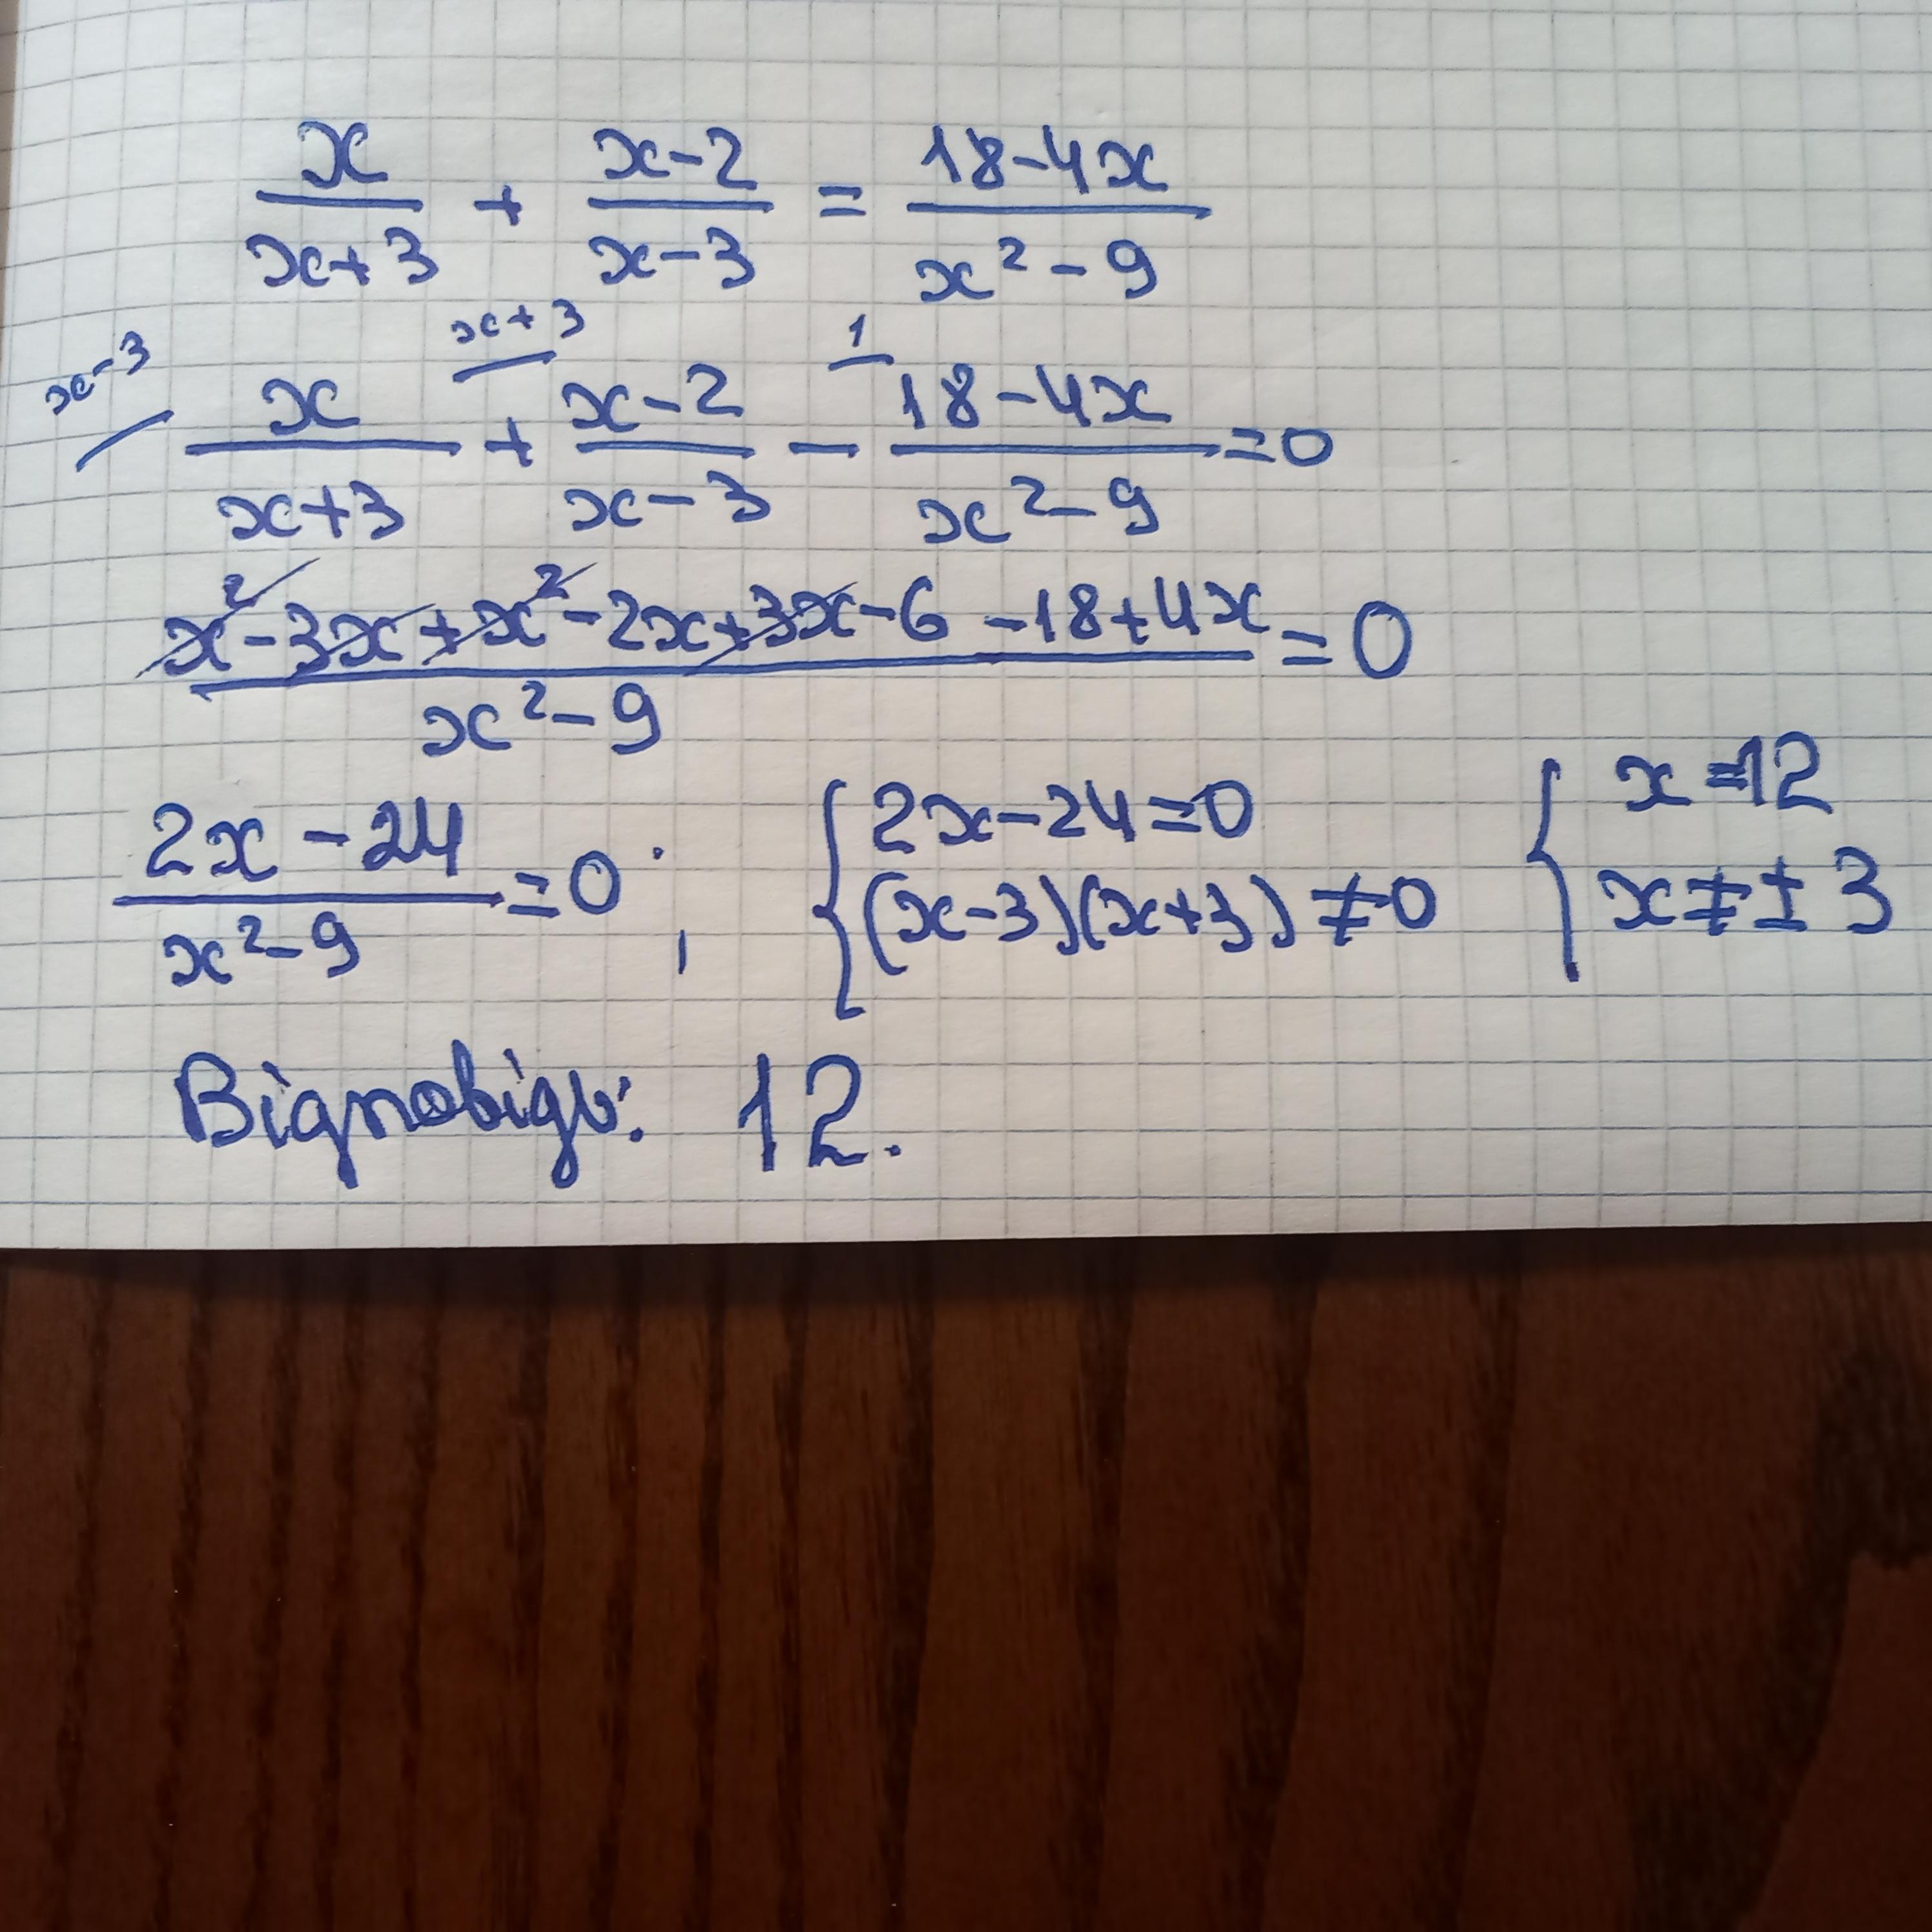 x/(x+3) + (x-2)/(x-3) = (18-4x)/(x²-9)
x-3/ x/(x+3) + x+3/ (x-2)/(x-3) - 1/ (18-4x)/(x²-9) = 0
(x²-3x+x²-2x+3x-6-18+4x)/(x²-9) = 0
(2x-24)/(x²-9) = 0; { 2x-24=0 (x-3)(x+3)≠0 { x=12 x≠±3
Відповідь: 12.